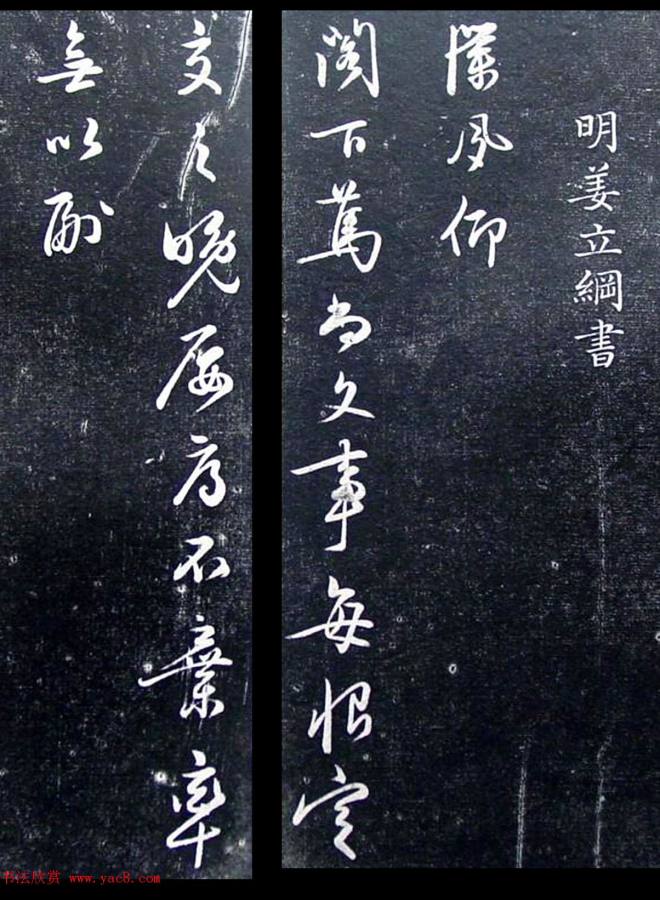 明姜立綱書
僕夙仰
閣下篤尚文事每恨定
交之晚屢辱不棄率
無以副
书法欣赏 www.yac8.com